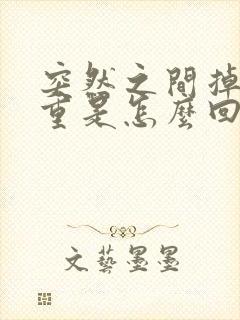 突然之間掉
重是怎麼回
文藝墨墨